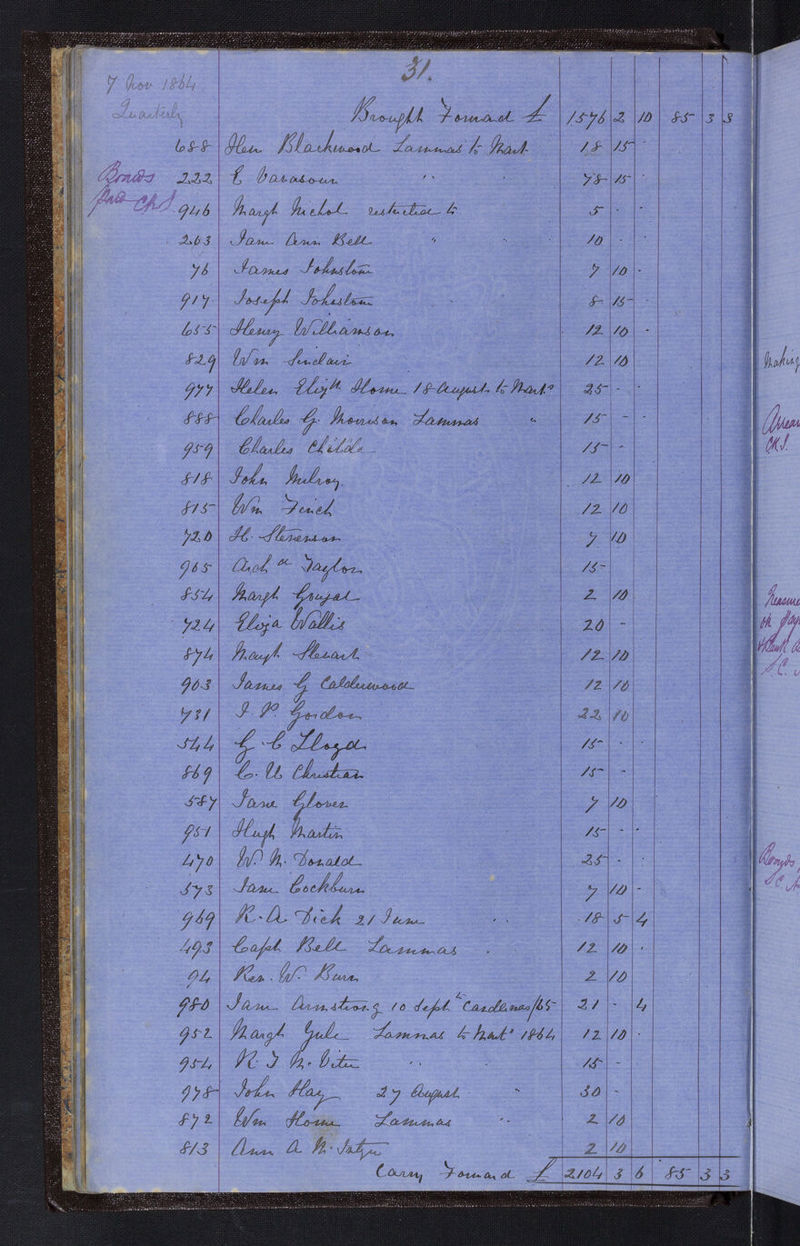 31.
7 Nov 1864
Quarterly
Brought Forward £ 1576 2 10 85 3 3
688 Hen Blackwood Lammas to Mart 18 15 -
Bonds
222 E Vavasour " " 78 15 -
946 Margt Nichol restricted to 5 - -
263 Jane Ann Bell " 10 - -
76 James Johnstone 7 10 -
917 Joseph Johnstone 8 15 -
655 Henry Williamson 12 10 -
829 Wm Sinclair 12 10
977 Helen Elizth Home 18 August to Marts 25 - -
888 Charles G. Morrison Lammas " 15 - -
959 Charles Childs 15 -
818 John Milroy 12 10
815 Wm Finch 12 10
720 H. Stevenson 7 10
905 Archd Taylor 15 -
854 Margt Goujat 2 10
724 Eliza Wallis 20 -
874 Margt Stewart 12 10
903 James G Calderwood 12 10
731 J. P. Gordon 22 10
544 G C Lloyd 15 - -
869 C. U Christian 15 -
587 Jane Glover 7 10
951 Hugh Martin 15 - -
470 W. McDonald 25 - -
573 Jane Cockburn 7 10 -
969 R. A. Dick 21 June " 18 5 4
493 Capt Bell Lammas 12 10 -
94 Rev. W. Burn 2 10
980 Jane Armstrong 10 Sept to Candlemas/65 21 - 4
952 Margt Yule Lammas to Marts 1864 12 10 -
954 R. J Mc " 15 -
978 John Hay 27 August " 30 -
872 Wm Home Lammas " 2 10
813 Ann A Mc 2 10
Carry Forward £ 2104 3 6 85 3 3
Making
CRS.
Bonds